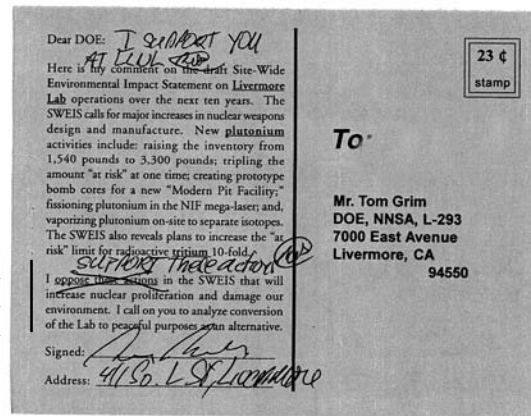 Dear DOE: I SUPPORT YOU
AT LLNL
Here is my comment on the draft Site-Wide
Environmental Impact Statement on Livermore
Lab operations over the next ten years. The
SWEIS calls for major increases in nuclear weapons
design and manufacture. New plutonium
activities include: raising the inventory from
1,540 pounds to 3,300 pounds; tripling the
amount "at risk" at one time; creating prototype
bomb cores for a new "Modern Pit Facility;"
fissioning plutonium in the NIF mega-laser; and,
vaporizing plutonium on-site to separate isotopes.
The SWEIS also reveals plans to increase the "at
risk" limit for radioactive tritium 10-fold.
SUPPORT These action
I oppose these actions in the SWEIS that will
increase nuclear proliferation and damage our
environment. I call on you to analyze conversion
of the Lab to peaceful purposes as an alternative.
Signed:
Address: 411 So. L St, Livermore
23 ¢
stamp
To
Mr. Tom Grim
DOE, NNSA, L-293
7000 East Avenue
Livermore, CA
94550